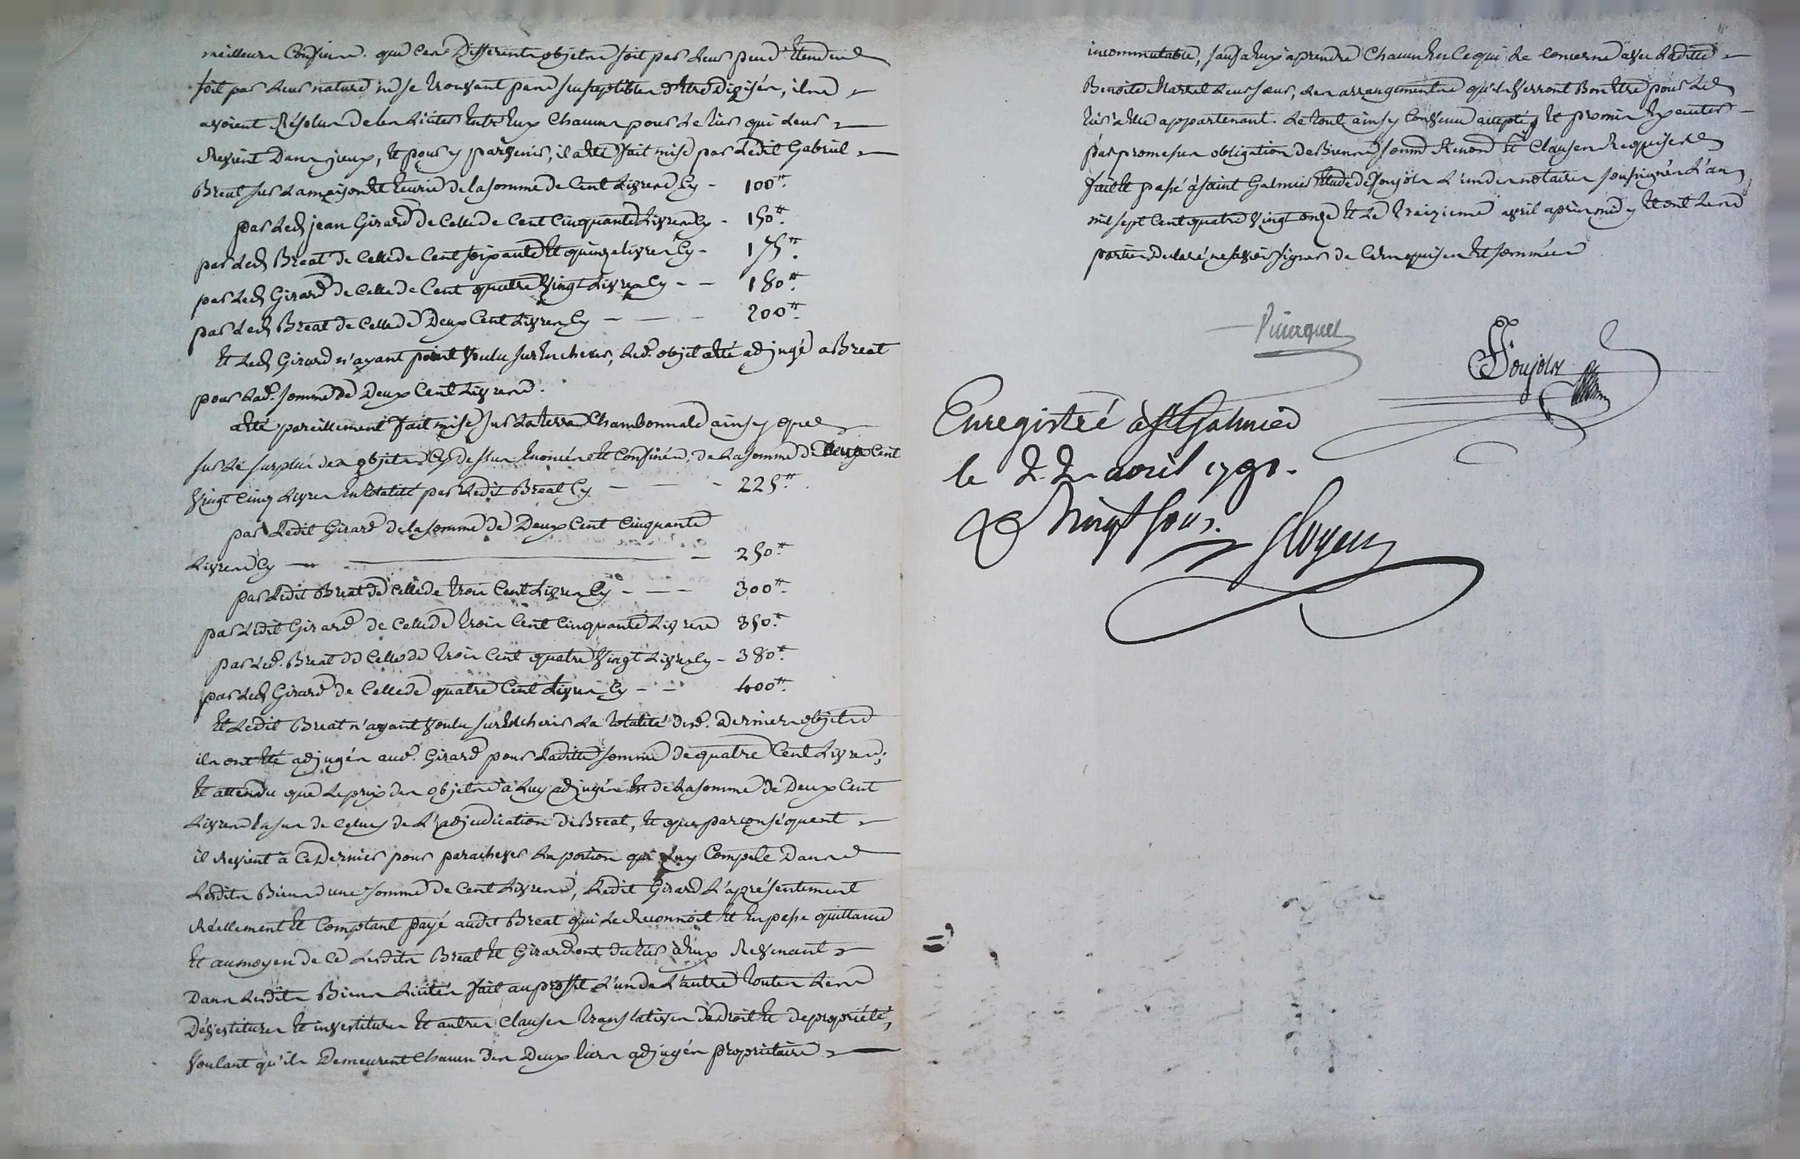 meilleurs Confins. que ces Differents objets soit par leur peu d'Etendue
soit par leur nature ne se trouvant pas susceptibles d'etre divisés, ils
avoient Résolus de les liciter Entr'Eux Chacun pour le tiers qui leur
Revient Dans jceux, Et pour y parvenir, il a été fait mise par Ledit Gabriel
Breat sur La maison Et Ecurie de la somme de Cent Livres Cy - 100tt.
par Led. jean Girard de Celle de Cent Cinquante Livres Cy - 150tt.
par Led. Breat de Celle de Cent soixante Et quinze livres Cy - 175tt.
par Led. Girard de Celle de Cent quatre Vingt Livres Cy - - 180tt.
par Led. Breat de Celle de Deux Cent Livres Cy - - - 200tt.
Et Led. Girard n'ayant point Voulu surEncherir, Led. objet a été adjugé a Breat
pour Lad. somme de Deux Cent Livres.
a été pareillement fait mise sur La terre Chambonnale ainsy que
sur Le surplus des objets Cy Dessus Enoncés Et Confinés, de La somme de Deux Cent
Vingt Cinq Livres En totalité par Ledit Breat Cy - - - 225tt.
par Ledit Girard de la somme de Deux Cent Cinquante
Livres Cy - 250tt.
par Ledit Breat de Celle de trois Cent Livres Cy - - - 300tt.
par Ledit Girard de Celle de trois Cent Cinquante Livres 350tt.
par Led. Breat de Celle de trois Cent quatre Vingt Livres Cy - 380tt.
par Led. Girard de Celle de quatre Cent Livres Cy - - 400tt.
Et Ledit Breat n'ayant Voulu surEncherir La totalité desd. Derniers objets
ils ont Eté adjugés aud. Girard pour Ladite somme de quatre Cent Livres;
Et attendu que Le prix des objets à Luy adjugés Est de La somme de Deux Cent
Livres En sus de Celuy de L'adjudication de Breat, Et que par conséquent
il Revient à Ce Dernier pour parachever La portion qui Luy Compete Dans
Lesdits Biens une somme de Cent Livres, Ledit Girard L'a présentement
Réellement Et Comptant payé audit Breat qui Le Reconnoit Et En passe quittance
Et au moyen de Ce Lesdits Breat Et Girard ont du tiers à Eux Revenant
Dans Lesdits Biens Licités fait au proffit L'un de L'autre toutes Les
Dévestitures Et investitures Et autres Clauses translatives de Droit Et de propriété,
Voulant qu'ils Demeurent Chacun des Deux tiers adjugés propriétaire
incommutable, sauf a Eux a prendre Chacun En Ce qui Le concerne avec Ladite
Benoite Martel Leur sœur, Les arrangements qu'ils Verront Bon Etre pour Led.
tiers à Elle appartenant. Le tout ainsy Convenu accepté Et promis Executer
par promesses obligation de Biens soumd Renond Et Clauses Requises
fait Et passé à saint Galmier Etude de Soujols L'un des notaires soussignés L'an
mil sept Cent quatre Vingt onze Et Le treizieme avril après midy Et ont Les
parties Declaré ne savoir signer de Ce Enquises Et sommées
Soujols
Enregistré à St Galmier
le 22 avril 1791.
R Vingt sous.